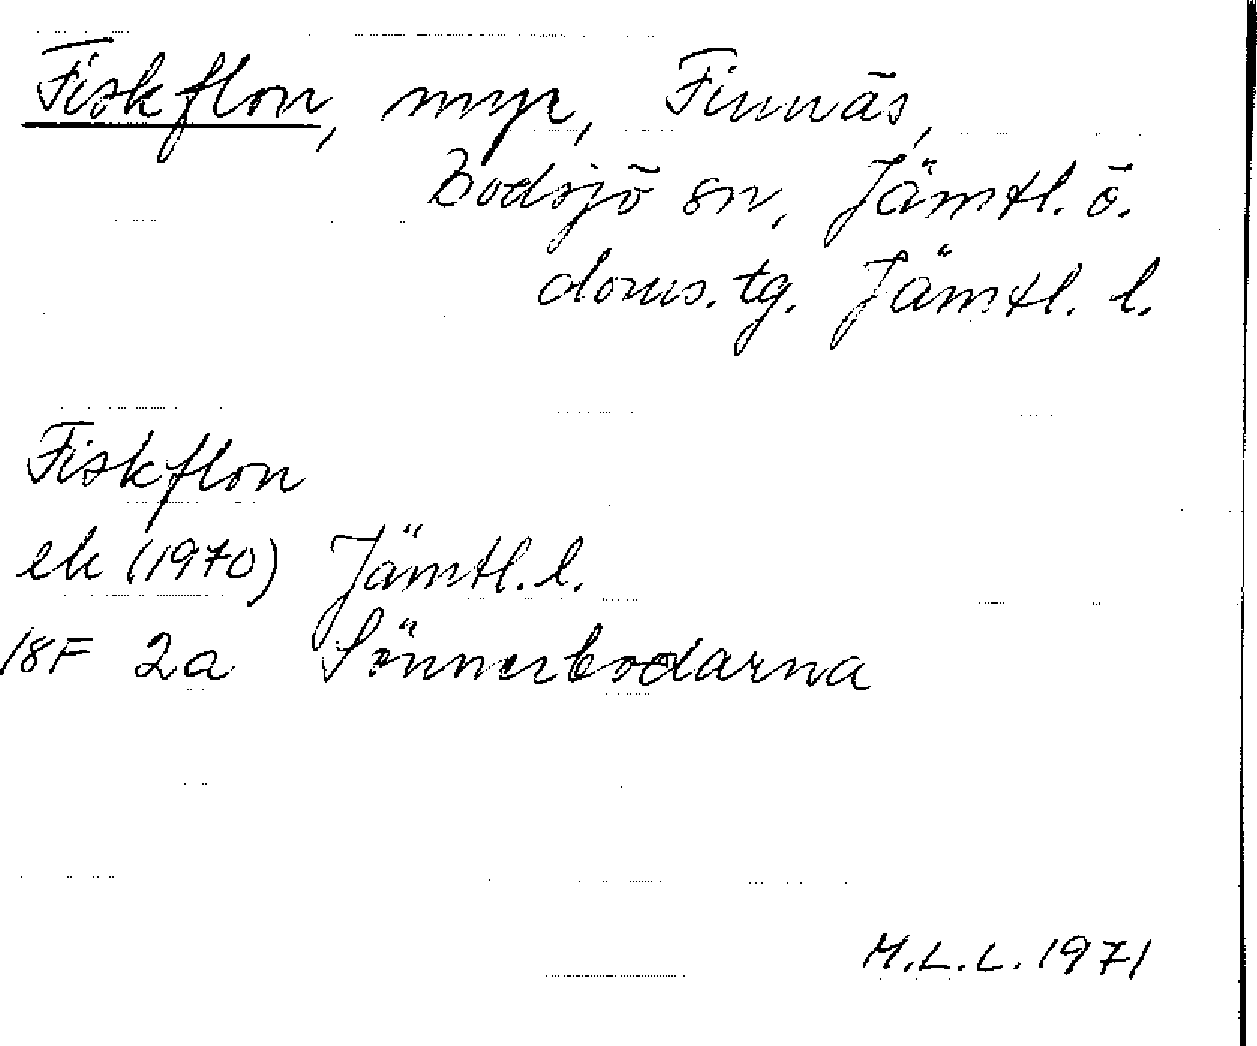 Fiskflon, myr, Finnäs,
Bodsjö sn, Jämtl. ö.
doms. tg. Jämtl. l.
Fiskflon
ek (1970) Jämtl. l.
18F 2a Sönnerbodarna
M.L.L. 1971